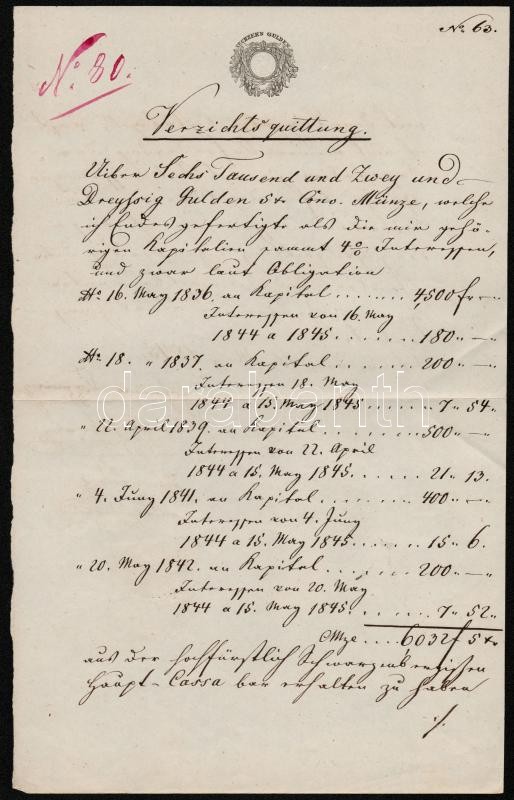 No 63.
No 80.
FÜNFZEHN GULDEN
Verzichtsquittung.
Uiber Sechs Tausend und Zwey und
Dreyßig Gulden 5 xr Conv. Münze, welche
ich Endes gefertigte als die mir gehö-
rigen Kapitalien sammt 4% Interessen,
und zwar laut Obligation
16. May 1836. an Kapital ........ 4,500 f —
Interessen von 16. May
1844 a 1845 ....... 180 " —
18. " 1837. an Kapital ........ 200 " —
Interessen 18. May
1844 a 15. May 1845 ...... 7 " 54 "
" 22. April 1839. an Kapital ....... 500 " —
Interessen von 22. April
1844 a 15. May 1845 ...... 21 " 13.
" 4. Juny 1841. an Kapital ....... 400 " —
Interessen von 4. Juny
1844 a 15. May 1845 ...... 15 " 6.
" 20. May 1842. an Kapital ....... 200 " —
Interessen von 20. May
1844 a 15. May 1845. ...... 7 " 52 "
CMze .... 6032 f 5 xr
aus der hochfürstlich Schwarzenbergischen
Haupt-Cassa bar erhalten zu haben
./.
darabanth